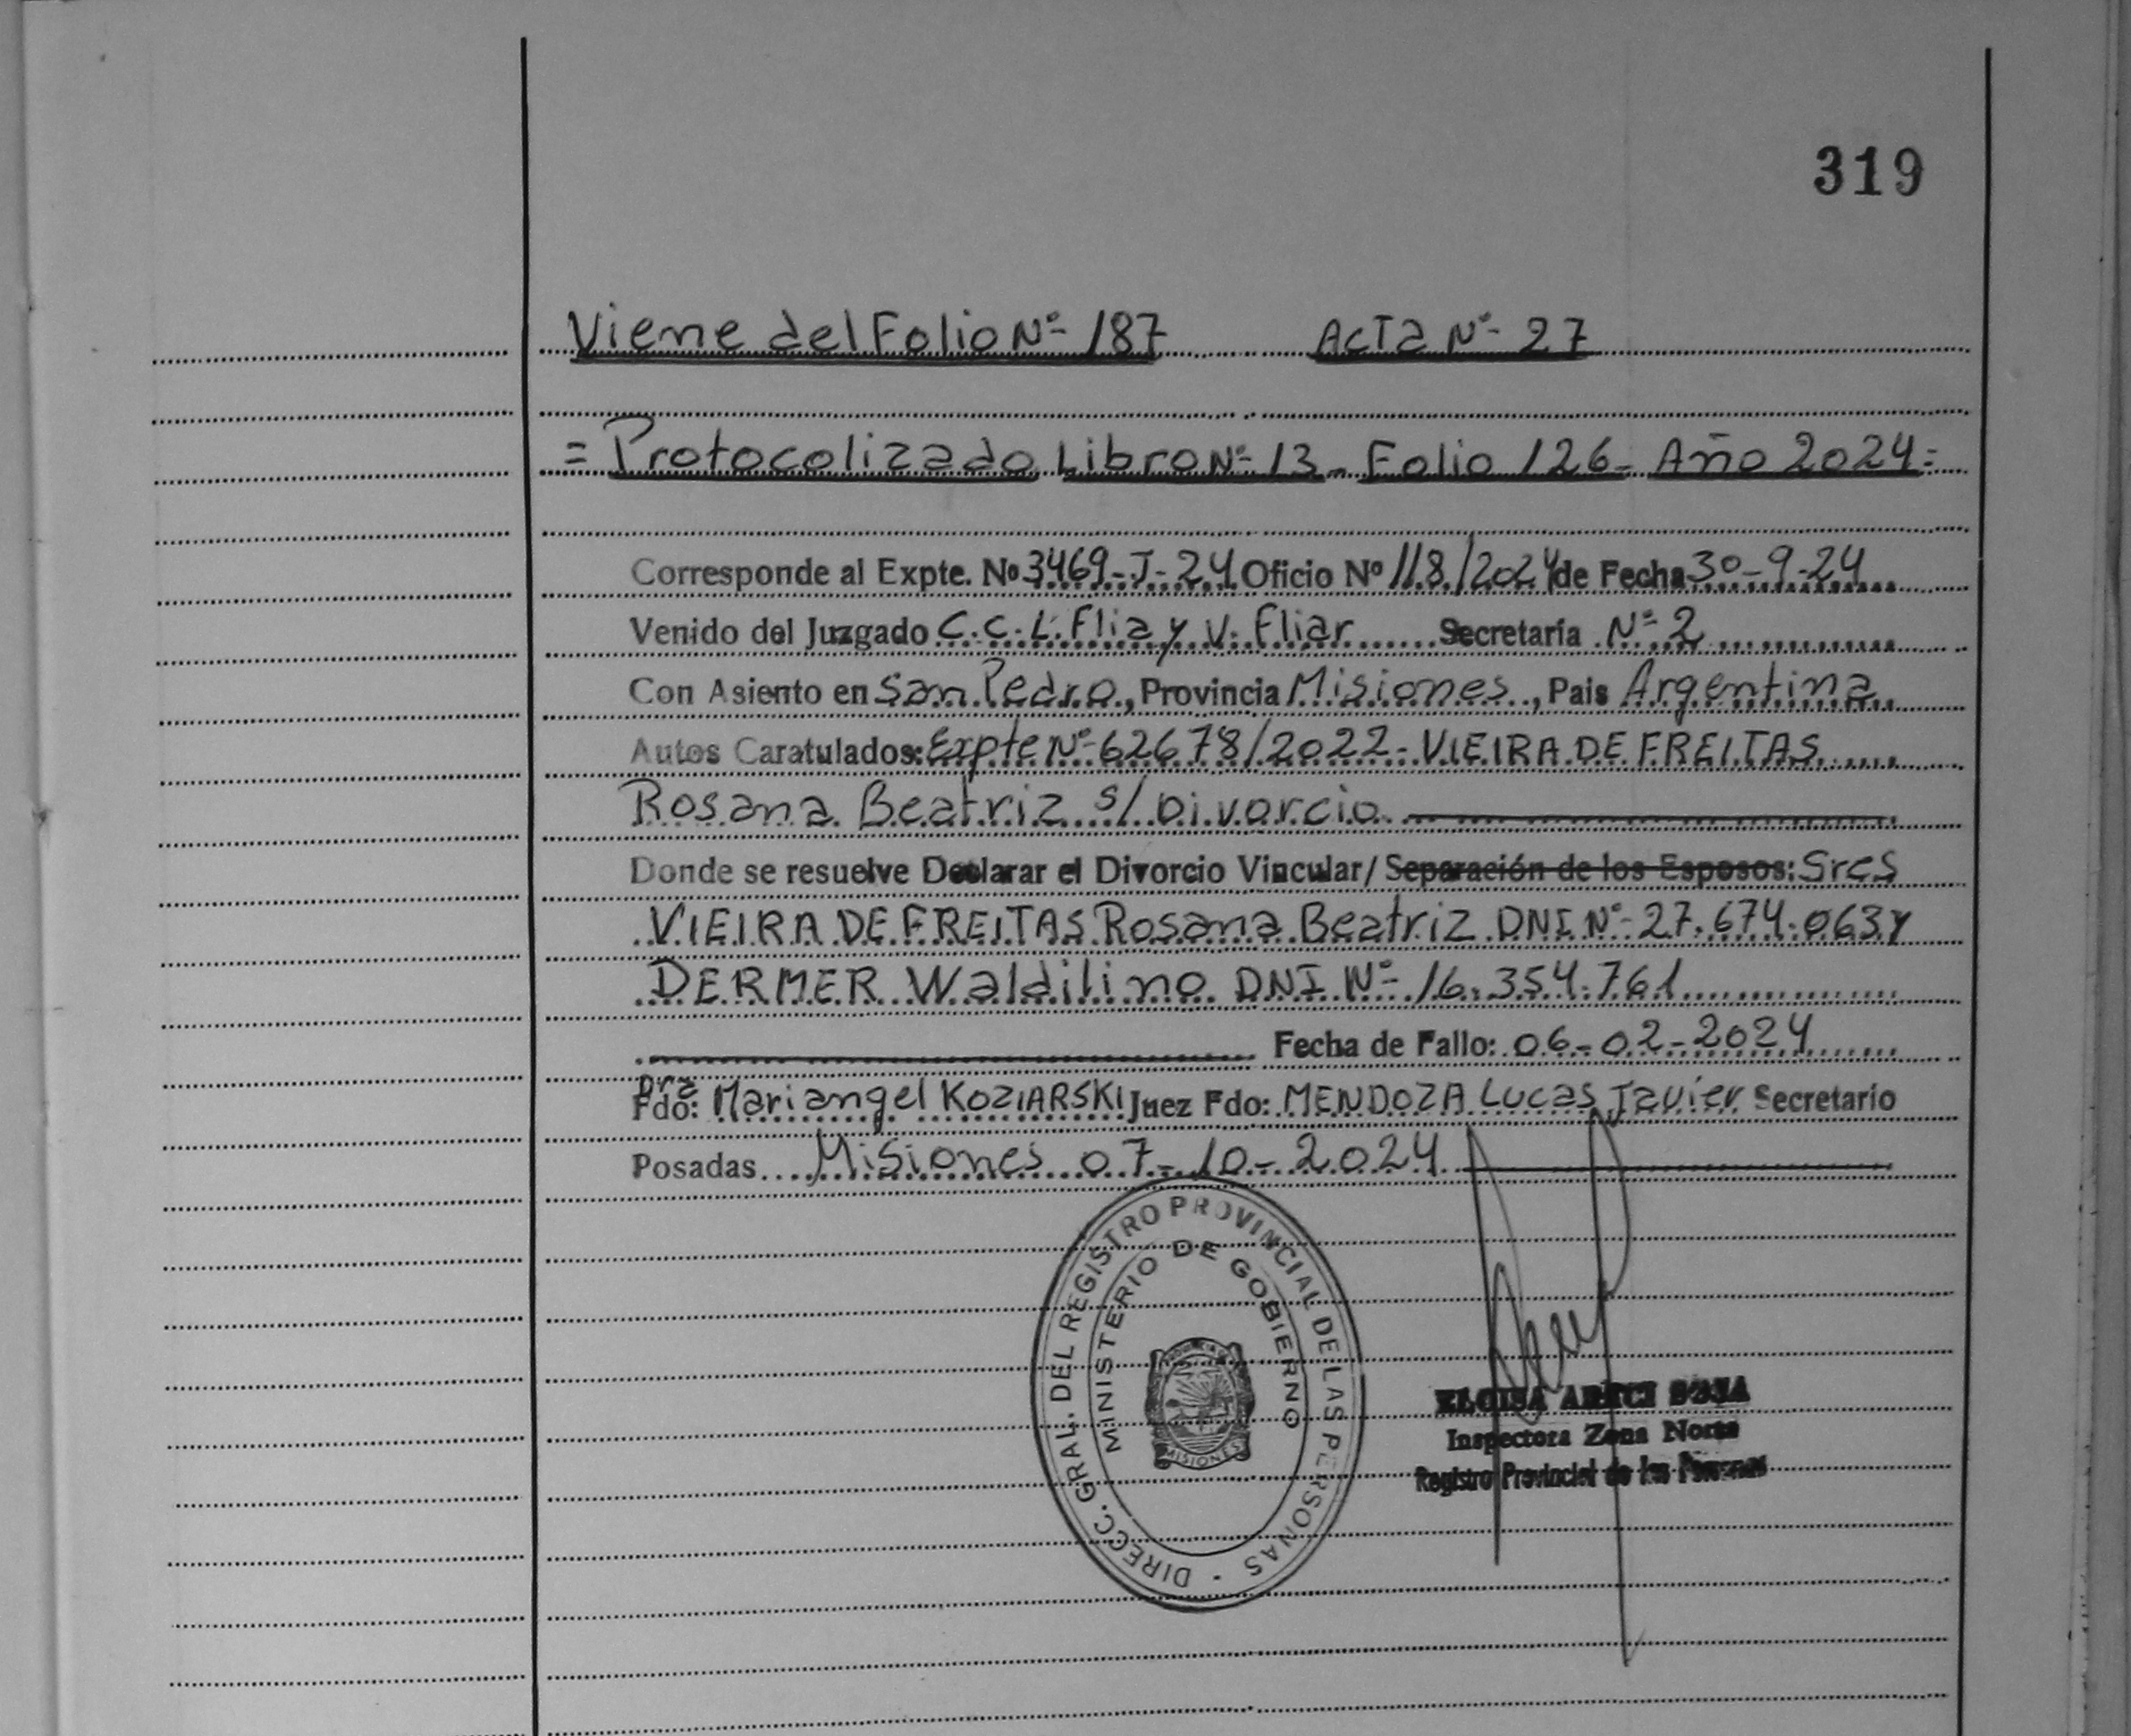 319
Viene del Folio Nº 187 Acta Nº 27
= Protocolizado Libro Nº 13 - Folio 126 - Año 2024 =
Corresponde al Expte. Nº 3469-J-24 Oficio Nº 118/2024 de Fecha 30-9-24
Venido del Juzgado C.C.L. Flia y V. Fliar Secretaría Nº 2
Con Asiento en San Pedro, Provincia Misiones, Pais Argentina
Autos Caratulados: Expte Nº 62678/2022 - VIEIRA DE FREITAS
Rosana Beatriz s/ Divorcio
Donde se resuelve Declarar el Divorcio Vincular/ Separación de los Esposos: Sres
VIEIRA DE FREITAS Rosana Beatriz DNI Nº 27.674.063 y
DERMER Waldilino DNI Nº 16.354.761
Fecha de Fallo: 06-02-2024
Fdo: Dra Mariangel KOZIARSKI Juez Fdo: MENDOZA Lucas Javier Secretario
Posadas Misiones 07-10-2024
DIRECC. GRAL. DEL REGISTRO PROVINCIAL DE LAS PERSONAS
MINISTERIO DE GOBIERNO
MISIONES
ELOISA
Inspectora Zona Norte
Registro Provincial de las Personas